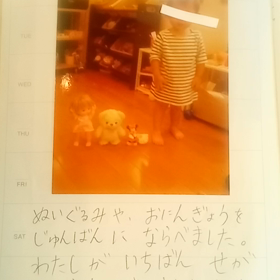 TUE
WED
THU
FRI
SAT
ぬいぐるみや、おにんぎょうを
じゅんばんに ならべました。
わたしが いちばん せが